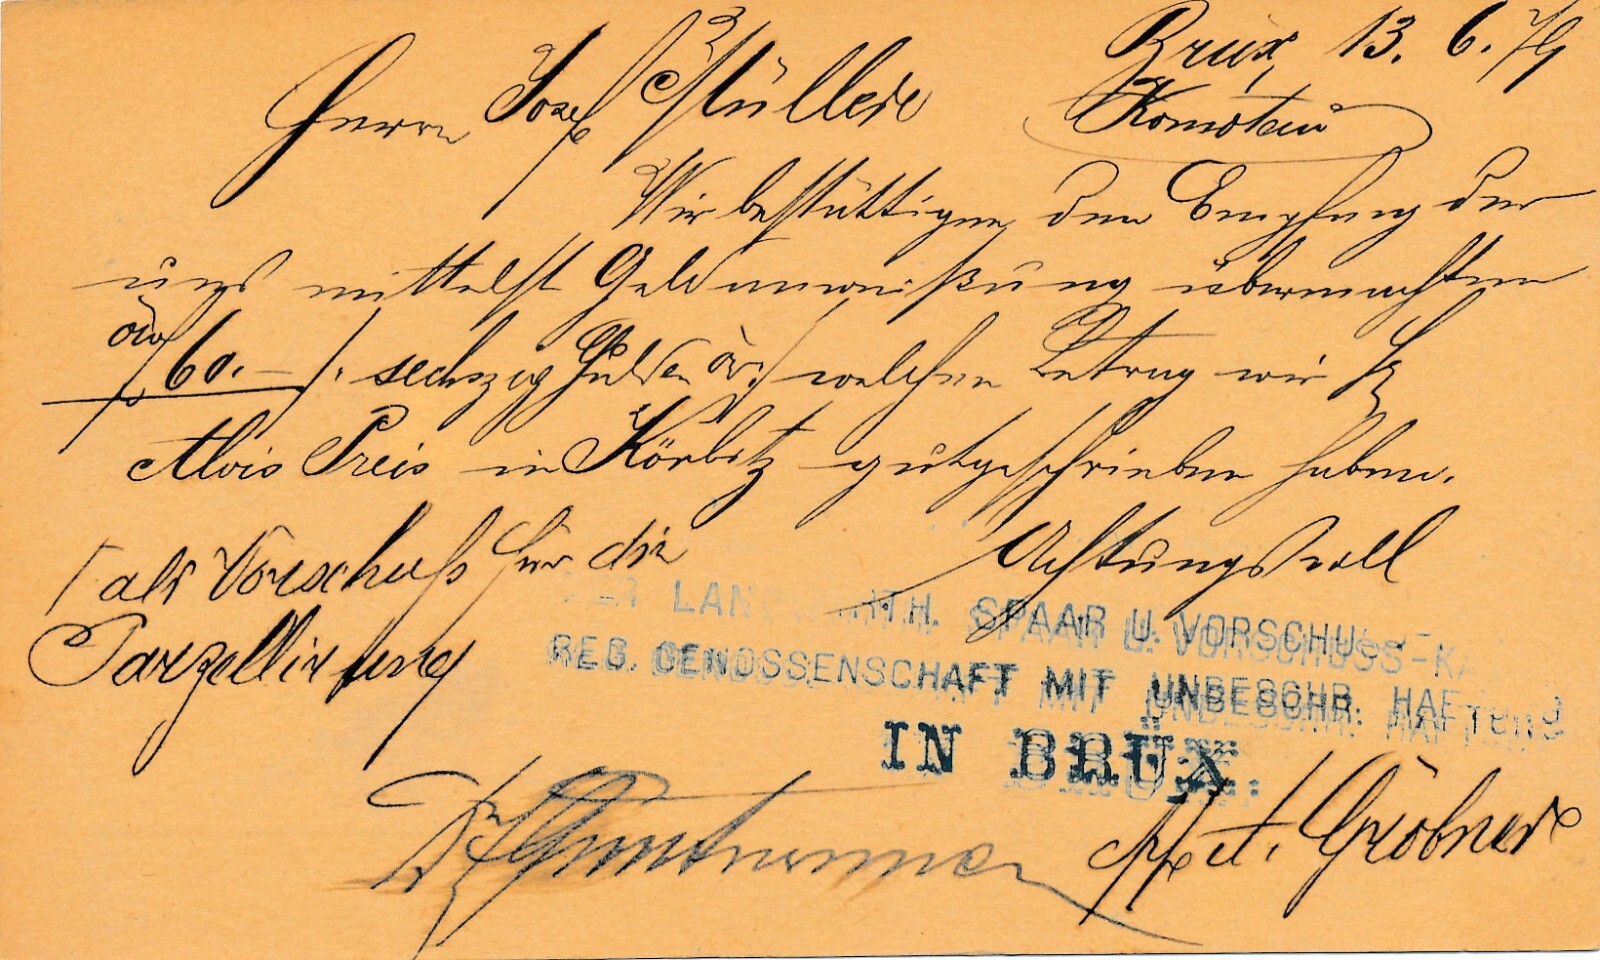 Brüx, 13. 6. 79
Herrn Josef Müller
Komotau
Wir bestättigen den Empfang der
uns mittelst Geldanweißung übermachten
öw
f 60.— /: sechszig Gulden öw:/ welchen Betrag wir H
Alois Preis in Körbitz gutgeschrieben haben.
/als Vorschuß für die
Parzellirung
Achtungsvoll
LANDWIRTH. SPAAR U. VORSCHUSS-KA
REG. GENOSSENSCHAFT MIT UNBESCHR. HAFTUNG
IN BRÜX.
Gröbner